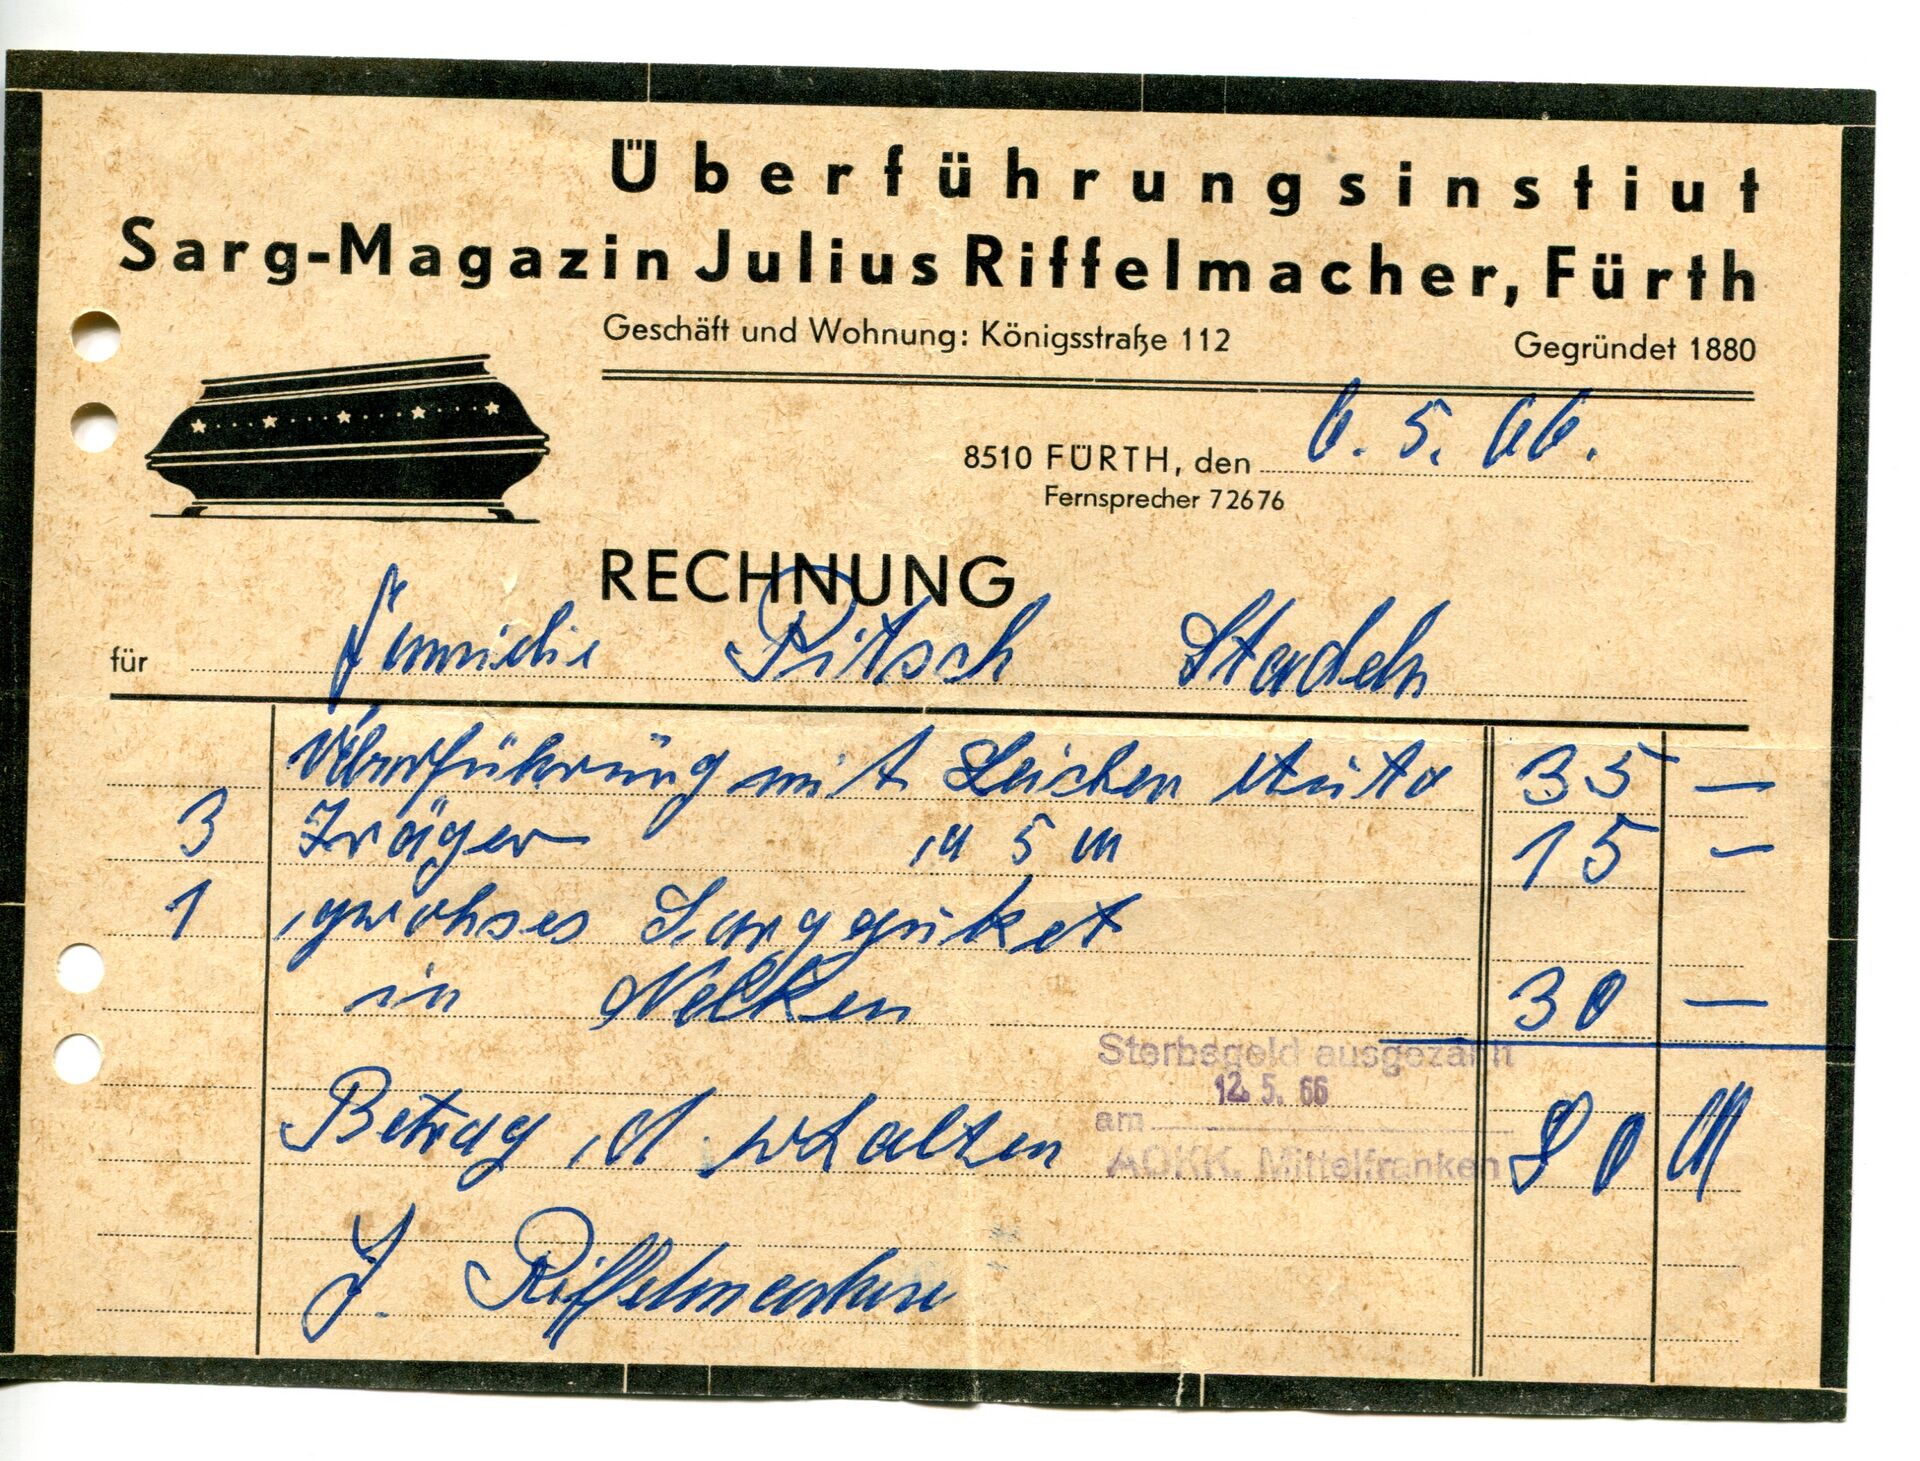 Überführungsinstiut
Sarg-Magazin Julius Riffelmacher, Fürth
Geschäft und Wohnung: Königsstraße 112
Gegründet 1880
8510 FÜRTH, den 6. 5. 66.
Fernsprecher 72676
RECHNUNG
für Familie Pitsch Stadeln
Überführung mit Leichen Auto 35 —
3 Träger a 5 M 15 —
1 großes Sargbuket
in Nelken 30 —
Sterbegeld ausgezahlt
12. 5. 66
am
AOKK. Mittelfranken
Betrag d. erhalten 80 M
J. Riffelmacher